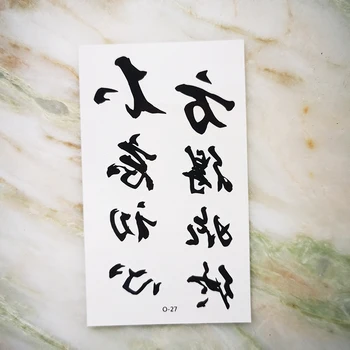 不忘初心
方得始终
O-27